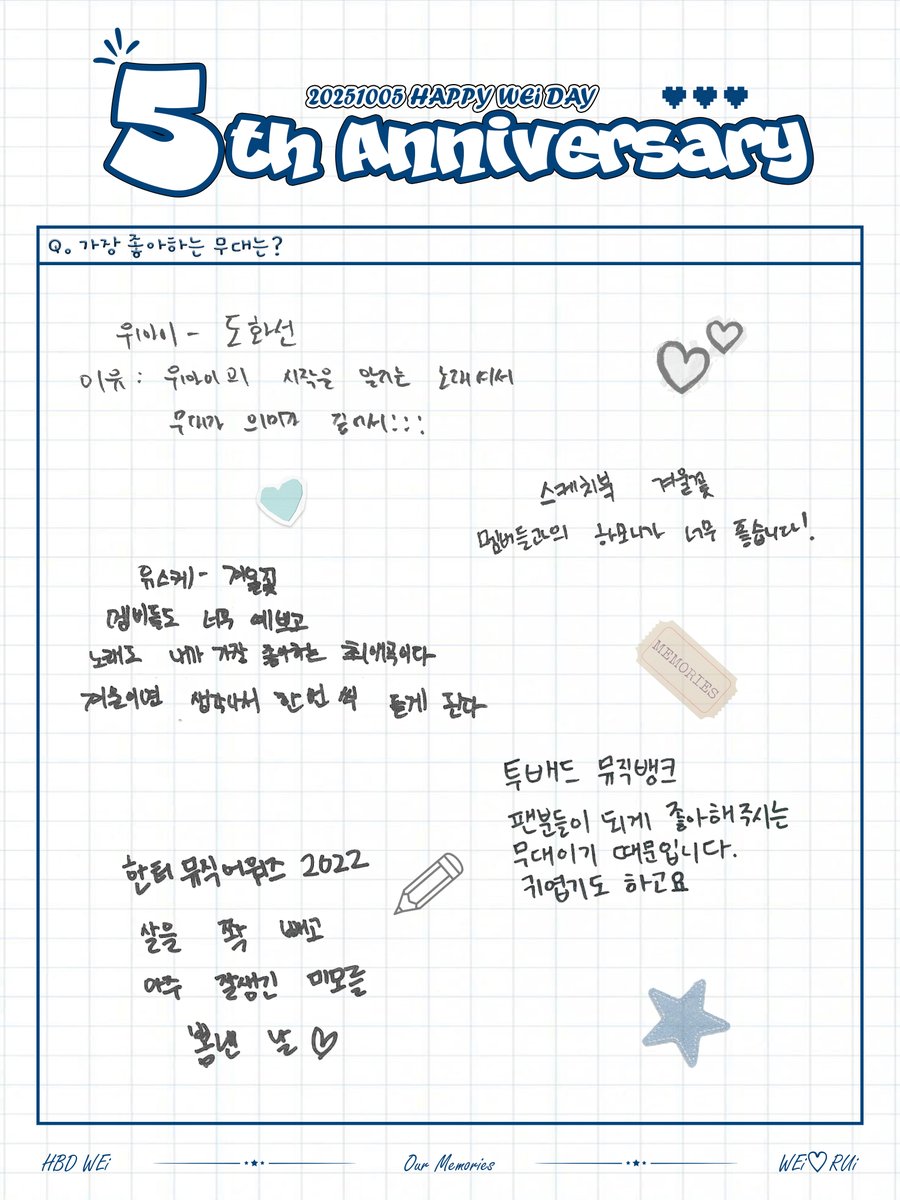 20251005 HAPPY WEi DAY
5th Anniversary
Q. 가장 좋아하는 무대는?
위아이 - 도화선
이유 : 위아이의 시작을 알리는 노래여서
무대가 의미가 깊어서:::
스케치북 겨울꽃
멤버들과의 하모니가 너무 좋습니다!
유스케 - 겨울꽃
멤버들도 너무 예쁘고
노래도 내가 가장 좋아하는 최애곡이다
겨울이면 생각나서 한 번 씩 듣게 된다
MEMORIES
투배드 뮤직뱅크
팬분들이 되게 좋아해주시는
무대이기 때문입니다.
귀엽기도 하고요
한터 뮤직어워즈 2022
살을 쫙 빼고
아주 잘생긴 미모를
뽐낸 날 ♡
HBD WEi
Our Memories
WEi♡RUi